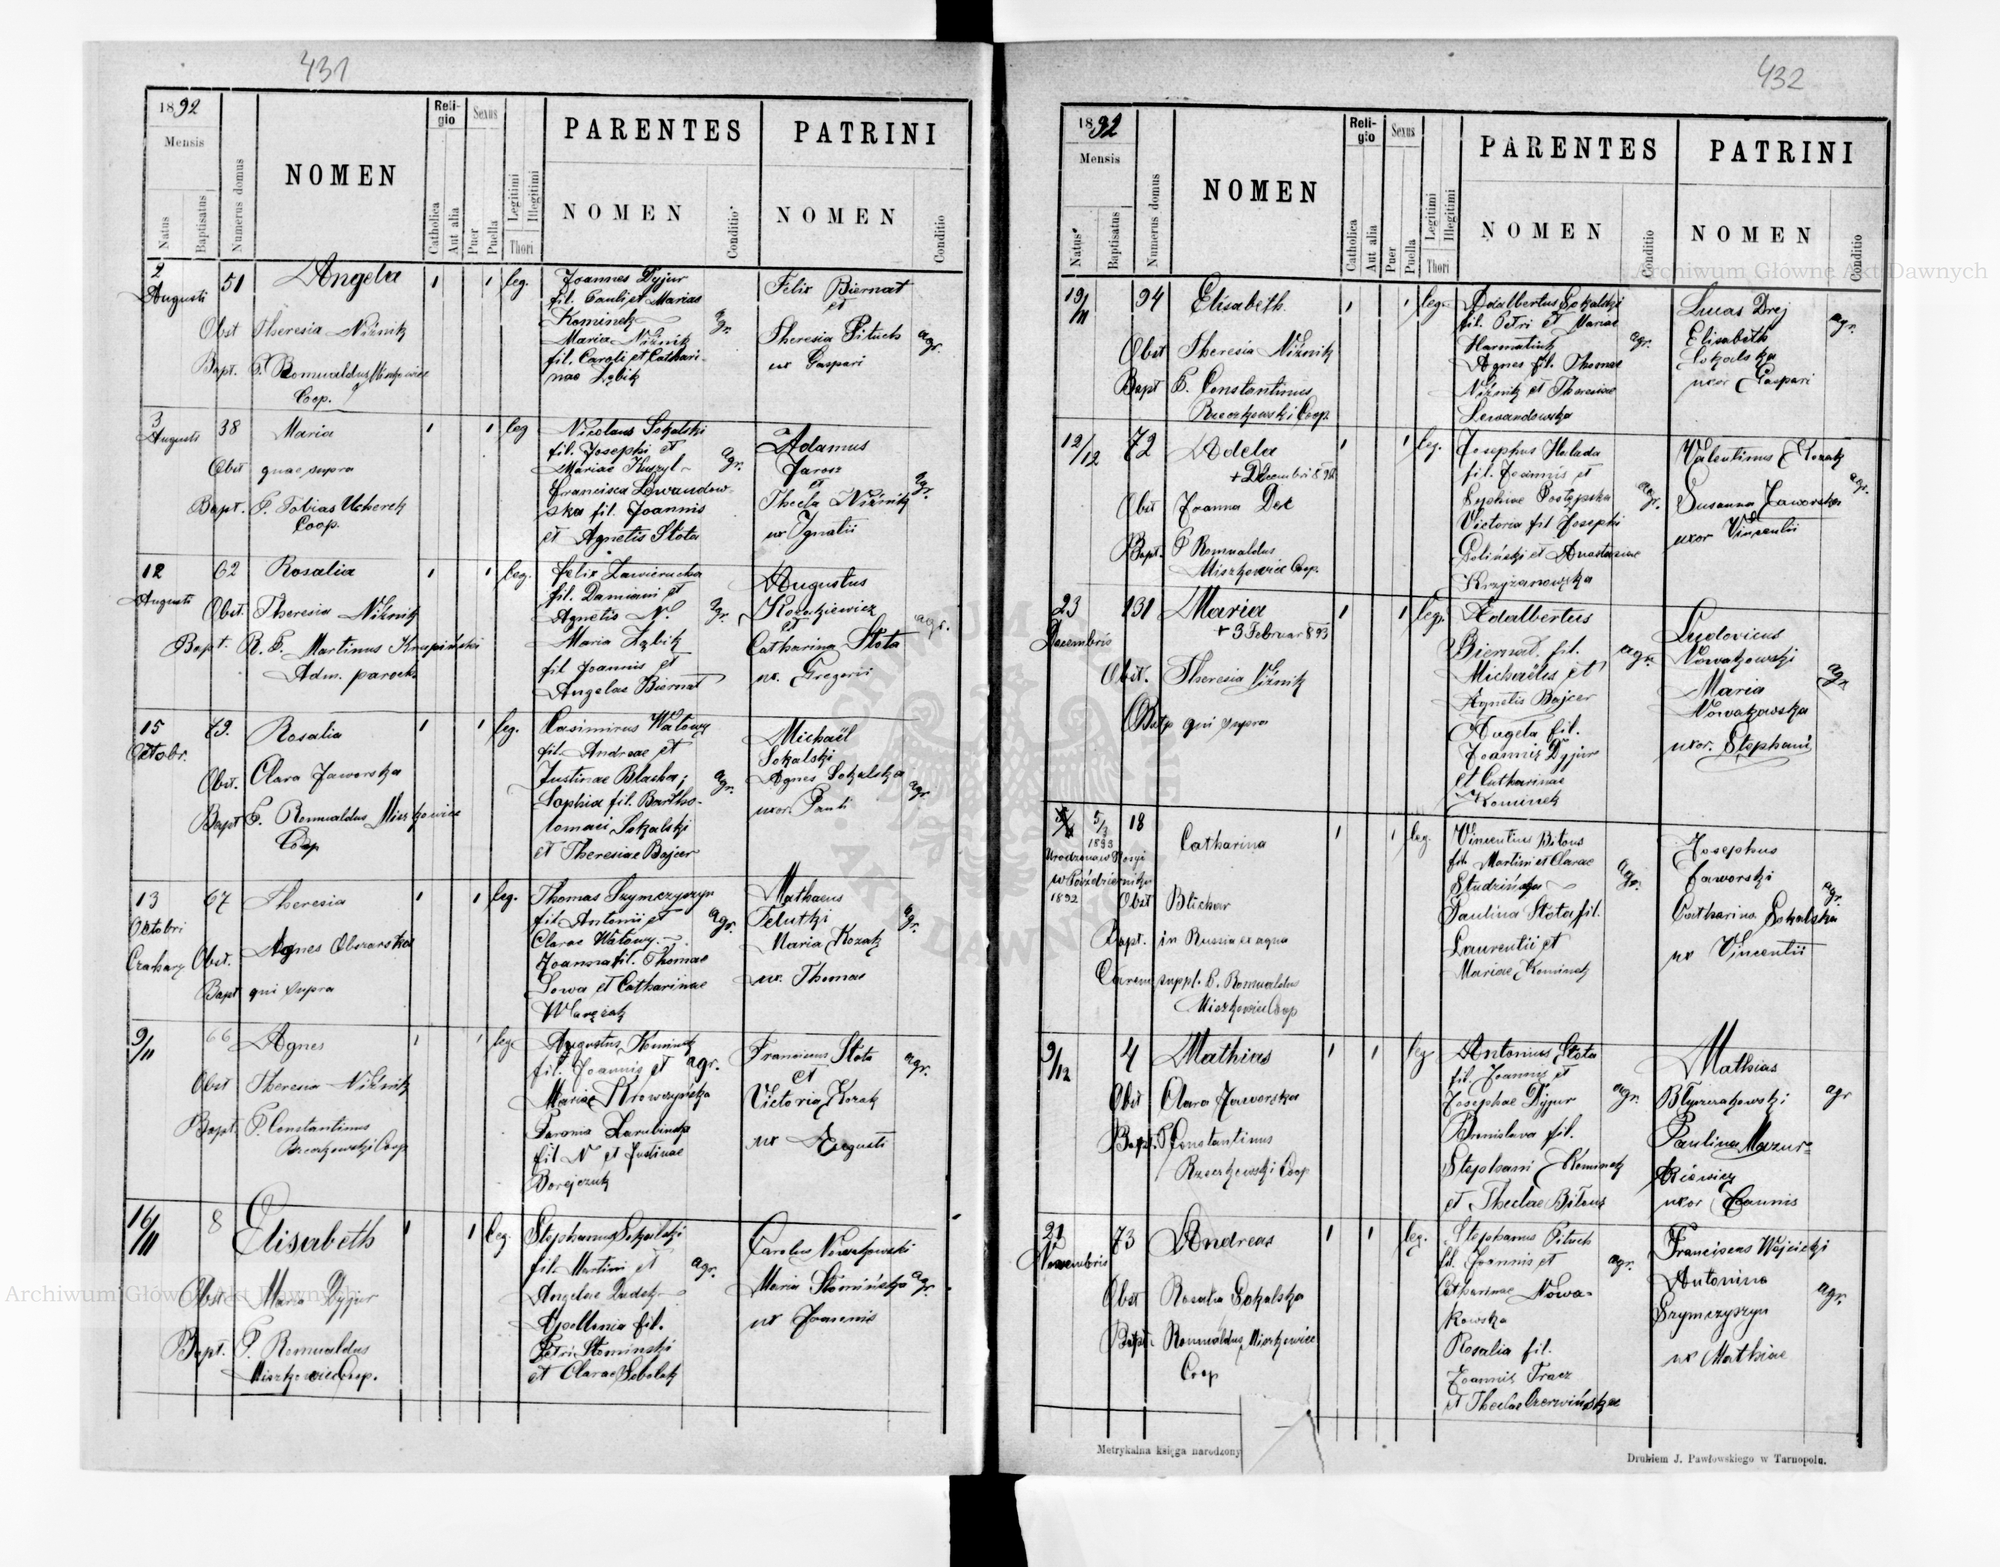 431
1892
Mensis
Natus
Baptisatus
Numerus domus
NOMEN
Religio
Catholica
Aut alia
Sexus
Puer
Puella
Legitimi
Illegitimi
Thori
PARENTES
NOMEN
Conditio
PATRINI
NOMEN
Conditio
2 Augusti
51
Angela
1
1
leg.
Joannes Dyjur
fil. Pauli et Mariae
Kominek
Maria Niźnik
fil. Caroli et Cathari-
nae Ząbik
agr.
Felix Biernat
et
Theresia Pituch
ux Gaspari
agr.
Obst Theresia Niźnik
Bapt. P. Romualdus Miszkowicz
Coop.
3 Augusti
38
Maria
1
1
leg
Nicolaus Sokalski
fil. Josephi et
Mariae
Francisca Lewandow-
ska fil. Joannis
et Agnetis Słota
agr.
Adamus
Jarosz
et
Thecla Niźnik
ux Ignatii
agr.
Obst quae supra
Bapt. P. Tobias Ucherek
Coop.
12 Augusti
62
Rosalia
1
1
leg.
Felix Zawierucha
fil. Damiani et
Agnetis N.
Maria Ząbik
fil Joannis et
Angelae Biernat
agr.
Augustus
Kozakiewicz
et
Catharina Słota
ux. Gregorii
agr.
Obst. Theresia Niźnik
Bapt. R. P. Martinus Krupiński
Adm. paroch
15 Octobr.
79.
Rosalia
1
1
leg.
Casimirus Watowy
fil. Andreae et
Justinae Blacha;
Sophia fil. Bartho-
lomaei Sokalski
et Theresiae Bajcer
agr.
Michaël
Sokalski
Agnes Sokalska
uxor Pauli
agr.
Obst. Clara Jaworska
Bapt P. Romualdus Miszkowicz
Coop
13 Oktobri
67
Theresia
1
1
leg.
Thomas Szymczyszyn
fil. Antonii et
Clarae Watowy
Joanna fil. Thomae
Sowa et Catharinae
agr.
Mathaeus
Maria Kozak
ux. Thomae
agr.
Obst. Agnes Obzarska
Bapt qui supra
9/11
66
Agnes
1
1
leg.
Augustus Kominek
fil. Joannis et
Mariae Krowczyńska
fil N et Justinae
agr.
Franciscus Słota
et
Victoria Kozak
ux Augusti
agr.
Obst Theresia Niźnik
Bapt. P. Constantinus
Rzeczkowski Coop
16/11
8
Elisabeth
1
1
leg.
Stephanus Sokalski
fil. Martini et
Angelae
Apollonia fil.
Petri Słominski
et Clarae Sobolak
agr.
Carolus Nowakowski
Maria Słomińska
ux Joannis
agr.
Obst Maria Dyjur
Bapt. P. Romualdus
Miszkowicz Coop.
432
1892
Mensis
Natus
Baptisatus
Numerus domus
NOMEN
Religio
Catholica
Aut alia
Sexus
Puer
Puella
Legitimi
Illegitimi
Thori
PARENTES
NOMEN
Conditio
PATRINI
NOMEN
Conditio
Archiwum Główne Akt Dawnych
19/11
94
Elisabeth
1
1
leg.
Adalbertus Sokalski
fil. Petri et Mariae
Harmatiuk
Agnes fil. Thomae
Niźnik et Theresiae
Lewandowska
agr.
Lucas Drej
Elisabeth
Sokalska
uxor Gaspari
agr.
Obst Theresia Niźnik
Bapt P. Constantinus
Rzeczkowski Coop.
12/12
72
Adela
+ 2 Decembri 892
1
1
leg.
Josephus Halada
fil. Joannis et
Sophiae Postępska
Victoria fil Josephi
Goliński et Anastasiae
Krzyżanowska
agr.
Valentinus Kozak
Susanna Jaworska
uxor Vincentii
agr.
Obst Joanna Dec
Bapt. P Romualdus
Miszkowicz Coop.
23 Decembris
131
Maria
+ 3 Februar 893
1
1
leg.
Adalbertus
Biernat fil.
Michaëlis et
Agnetis Bajcer
Angela fil.
Joannis Dyjur
et Catharinae
Kominek
agr.
Ludovicus
Nowakowski
Maria
Nowakowska
uxor. Stephani
agr.
Obst. Theresia Niźnik
Bapt qui supra
5/3 1893
18
Catharina
1
1
leg.
Vincentius Bitous
fil. Martini et Clarae
Studzińska
Paulina Słota fil.
Laurentii et
Mariae Kominek
agr.
Josephus
Jaworski
Catharina Sokalska
ux Vincentii
agr.
Urodzona w Rosyi
w Październiku
1892
Obst Blichar
Bapt. in Russia ex aqua
Carem suppl. P. Romualdus
Miszkowicz Coop
9/12
4
Mathias
1
1
leg
Antonius Słota
fil. Joannis et
Josephae Dyjur
Bronislava fil.
Stephani Kominek
et Theclae Bitous
agr.
Mathias
Paulina Mazur-
kiewicz
uxor Joannis
agr
Obst Clara Jaworska
Bapt. P Constantinus
Rzeczkowski Coop
21 Novembris
73
Andreas
1
1
leg.
Stephanus Pituch
fil. Joannis et
Catharinae Nowa-
kowska
Rosalia fil.
Joannis Tracz
et Theclae Czerwińskae
agr.
Franciscus Wojcicki
Antonina
Szymczyszyn
ux Mathiae
agr.
Obst Rosalia Sokalska
Bapt. Romualdus Miszkowicz
Coop
Archiwum Główne Akt Dawnych
ARCHIWUM GŁÓWNE AKT DAWNYCH
Metrykalna księga narodzony
Drukiem J. Pawłowskiego w Tarnopolu.